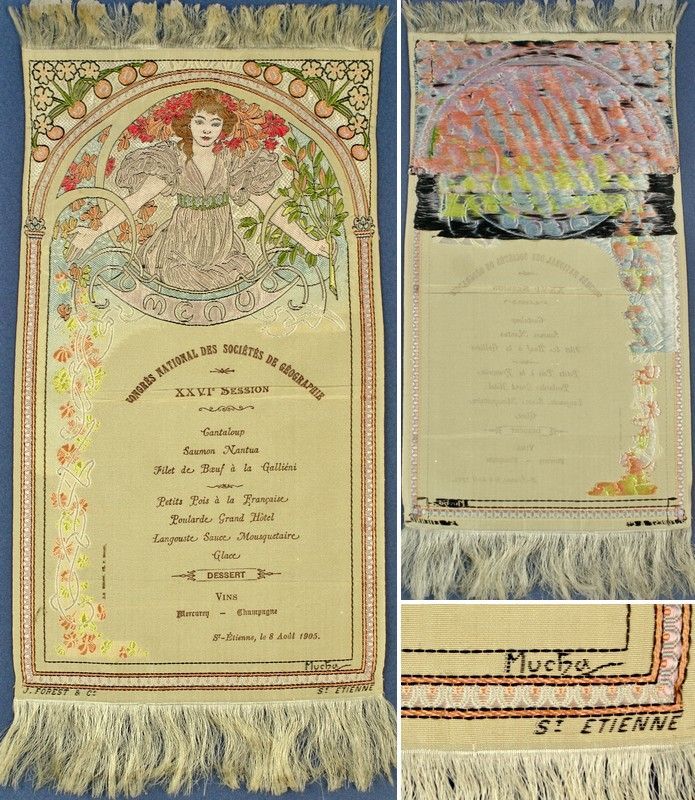 MENUS
CONGRÈS NATIONAL DES SOCIÉTÉS DE GÉOGRAPHIE
XXVIᵉ SESSION
Cantaloup
Saumon Nantua
Filet de Bœuf à la Galliéni
Petits Pois à la Française
Poularde Grand Hôtel
Langouste Sauce Mousquetaire
Glace
DESSERT
VINS
Mercurey — Champagne
Sᵗ-Étienne, le 8 Août 1905.
Mucha
J. FOREST & Cᵉ Sᵗ ETIENNE
Mucha
Sᵗ ETIENNE